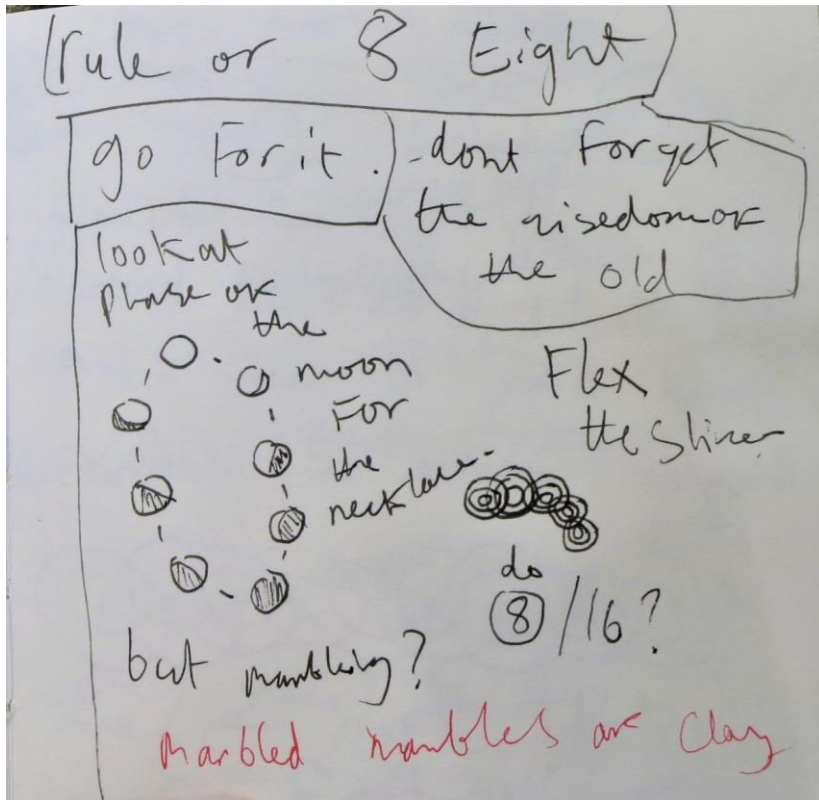 rule or 8 Eight
go For it.
-dont Forget
the wisedom or
the old
look at
phase or
the
moon
For
the
necklace.
Flex
the Sliver
do
8/16?
but marbling?
Marbled marbles are Clay